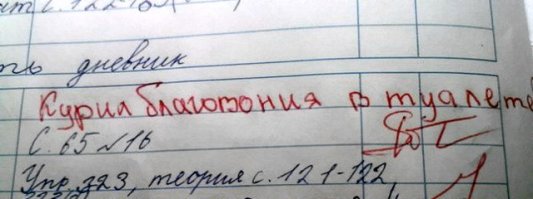 с. 122
ть дневник
Курил благовония в туалете
С. 65 №16
Упр. 323, теория с. 121-122,